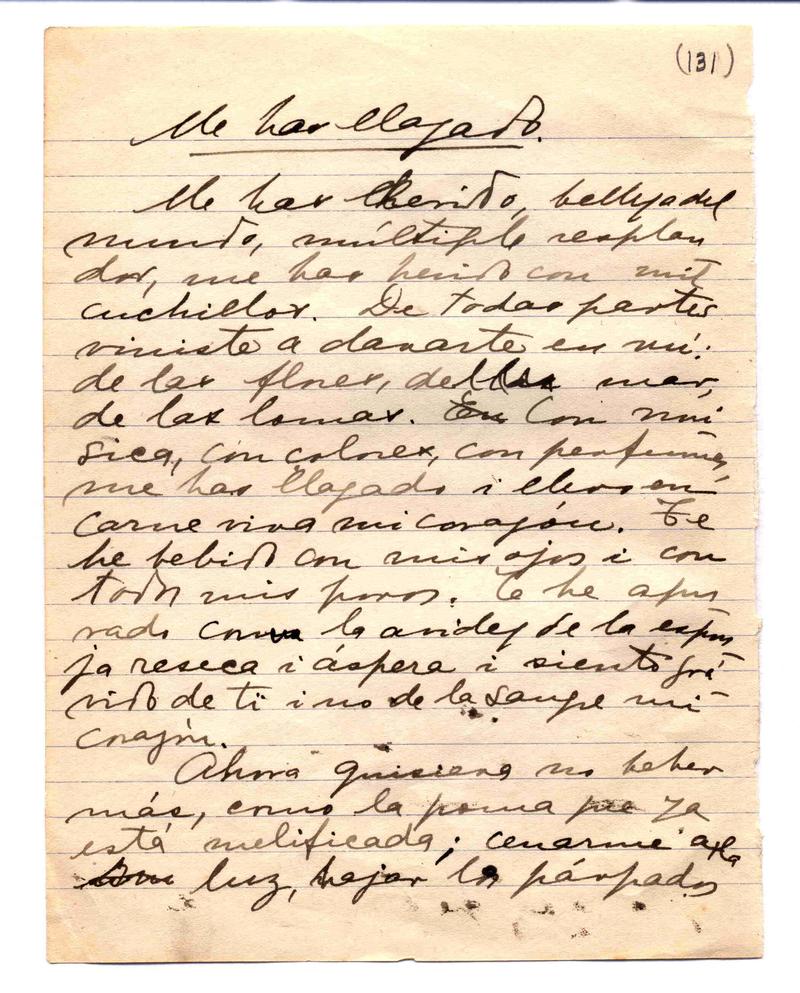 (131)
Me has llagado.
Me has herido, belleza del
mundo, múltiple resplan
dor, me has herido con mil
cuchillos. De todas partes
viniste a clavarte en mí:
de las flores, del mar,
de las lomas. En Con mú
sica, con colores, con perfumes,
me has llagado i llevo en
carne viva mi corazón. Te
he bebido con mis ojos i con
todos mis poros. Te he apu
rado con la avidez de la espon
ja reseca i áspera i siento grá
vido de ti i no de la sangre mi
corazón.
Ahora quisiera no beber
más, como la poma que ya
está melificada; cerrarme a la
luz, bajar los párpados